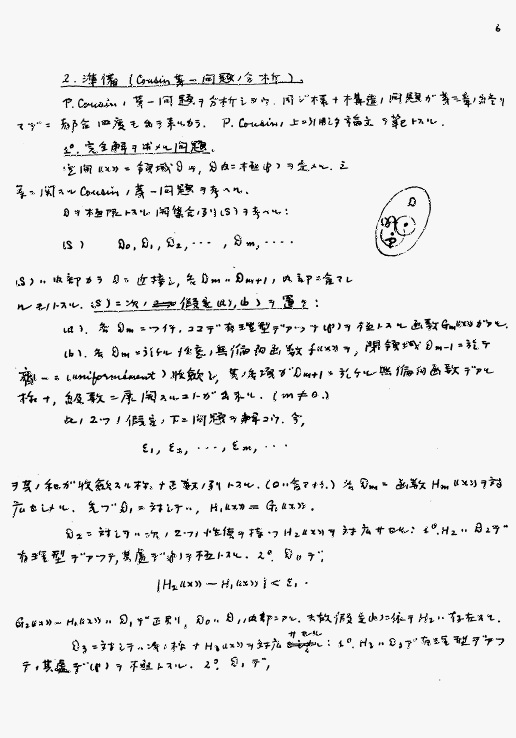 6
2. 準備 (Cousin 第一問題ノ分析).
P. Cousin ノ第一問題ヲ分析シヨウ. 同ジ様ナ構造ノ問題ガ
都合四度モ出テ来ルカラ. P. Cousin ノ上ニ引用シタ論文ヲ トスル.
1º. 完全解ヲ求メル問題.
空間 (x) ニ領域 D ヲ, D ニ極 (℘) ヲ定メル. 之
等ニ関スル Cousin ノ第一問題ヲ考ヘル.
D ヲ極限トスル閉集合ノ列 (S) ヲ考ヘル:
D
(S) D₀, D₁, D₂, ···, Dm, ····
(S) ハ内部カラ D ニ近接シ, 各 Dm ハ Dm+1 ノ内部ニ含マレ
ルモノトスル. (S) ニ次ノ 假定 (a), (b) ヲ置ク:
(a). 各 Dm ニツイテ, ココデ有理型デアツテ (℘) ヲ極トスル函数 Gm(x) ガアル.
(b). 各 Dm ニ於ケル任意ノ正則函数 f(x) ヲ, 閉領域 Dm-1 ニ於テ
一 (uniformément) 収斂シ, 其ノ各項ガ Dm+1 ニ於ケル 函数デアル
様ナ, 級数ニ展開スルコトガ出来ル. (m ≠ 0.)
此ノ2ツノ假定ノ下ニ問題ヲ解コウ. 今,
ε₁, ε₂, ···, εm, ···
ヲ其ノ和ガ収斂スル様ナ正数ノ列トスル. (0ハ含マナイ.) 各 Dm ニ函数 Hm(x) ヲ対
応セシメル. 先ヅ D₁ ニ対シテハ, H₁(x) = G₁(x).
D₂ ニ対シテハ次ノ2ツノ性質ヲ持ツ H₂(x) ヲ対応サセル: 1º. H₂ ハ D₂ デ
有理型デアツテ, 其處デ (℘) ヲ極トスル. 2º. D₀ デ,
|H₂(x) − H₁(x)| < ε₁.
G₂(x) − H₁(x) ハ D₁ デ正則, D₀ ハ D₁ ノ内部ニアル. 夫故假定 (b) ニ依テ H₂ ハ存在スル.
D₃ ニ対シテハ次ノ様ナ H₃(x) ヲ対応サセル: 1º. H₃ ハ D₃ デ有理型デアツ
テ, 其處デ (℘) ヲ極トスル. 2º. D₁ デ,